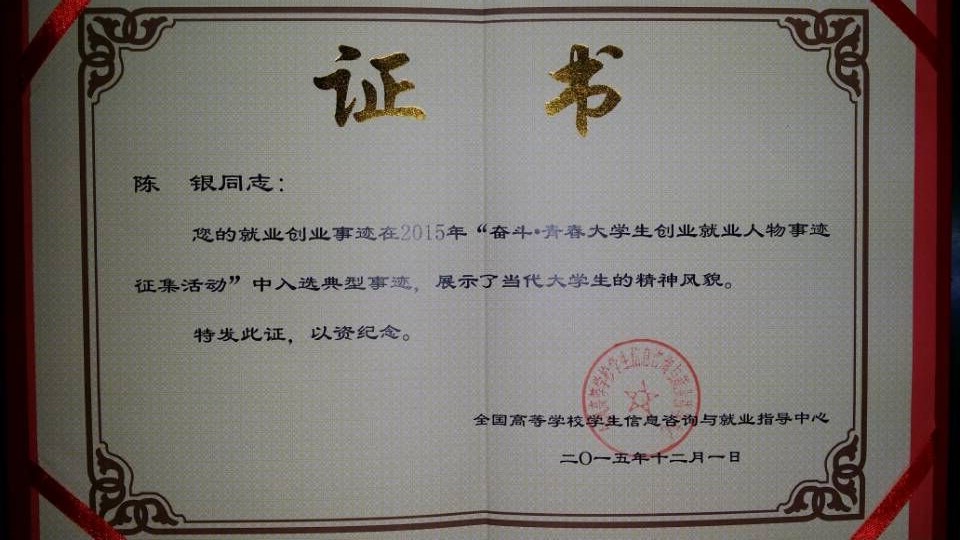 证书
陈 银同志：
您的就业创业事迹在2015年“奋斗•青春大学生创业就业人物事迹
征集活动”中入选典型事迹，展示了当代大学生的精神风貌。
特发此证，以资纪念。
全国高等学校学生信息咨询与就业指导中心
二〇一五年十二月一日